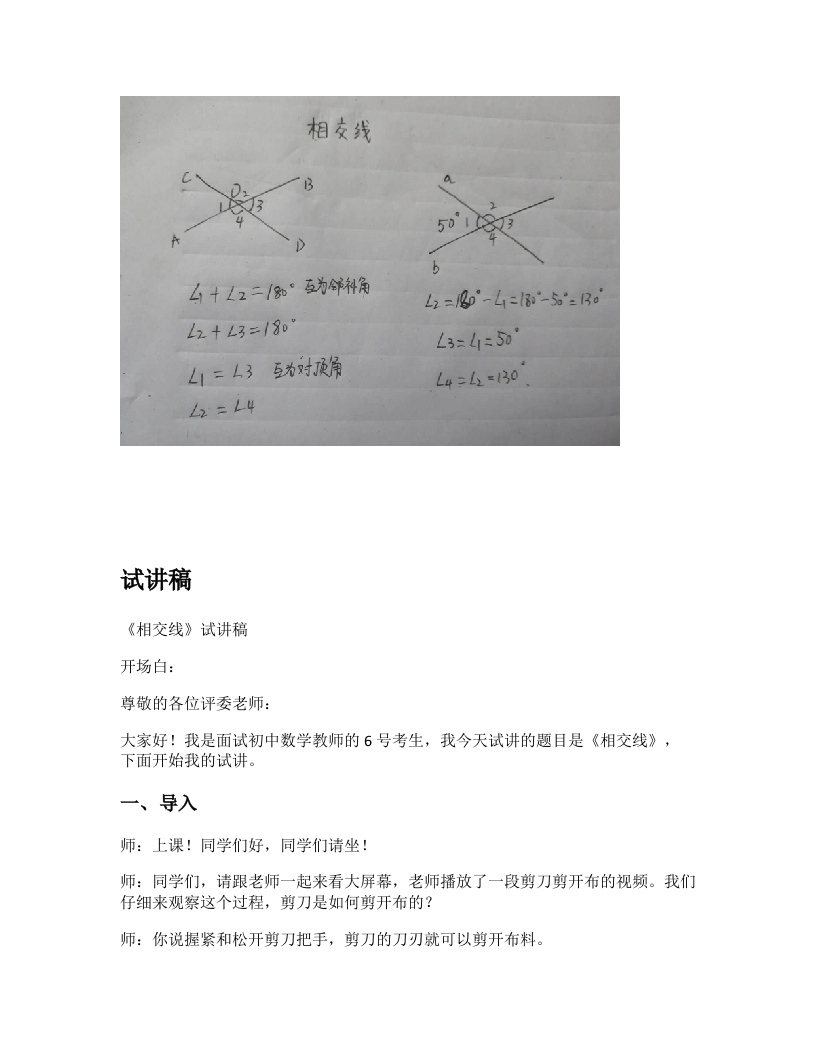 相交线
C
B
O
2
1
3
4
A
D
∠1+∠2=180° 互为邻补角
∠2+∠3=180°
∠1=∠3 互为对顶角
∠2=∠4
a
2
50° 1
3
4
b
∠2=180°-∠1=180°-50°=130°
∠3=∠1=50°
∠4=∠2=130°.
试讲稿
《相交线》试讲稿
开场白：
尊敬的各位评委老师：
大家好！我是面试初中数学教师的 6 号考生，我今天试讲的题目是《相交线》，
下面开始我的试讲。
一、导入
师：上课！同学们好，同学们请坐！
师：同学们，请跟老师一起来看大屏幕，老师播放了一段剪刀剪开布的视频。我们
仔细来观察这个过程，剪刀是如何剪开布的？
师：你说握紧和松开剪刀把手，剪刀的刀刃就可以剪开布料。